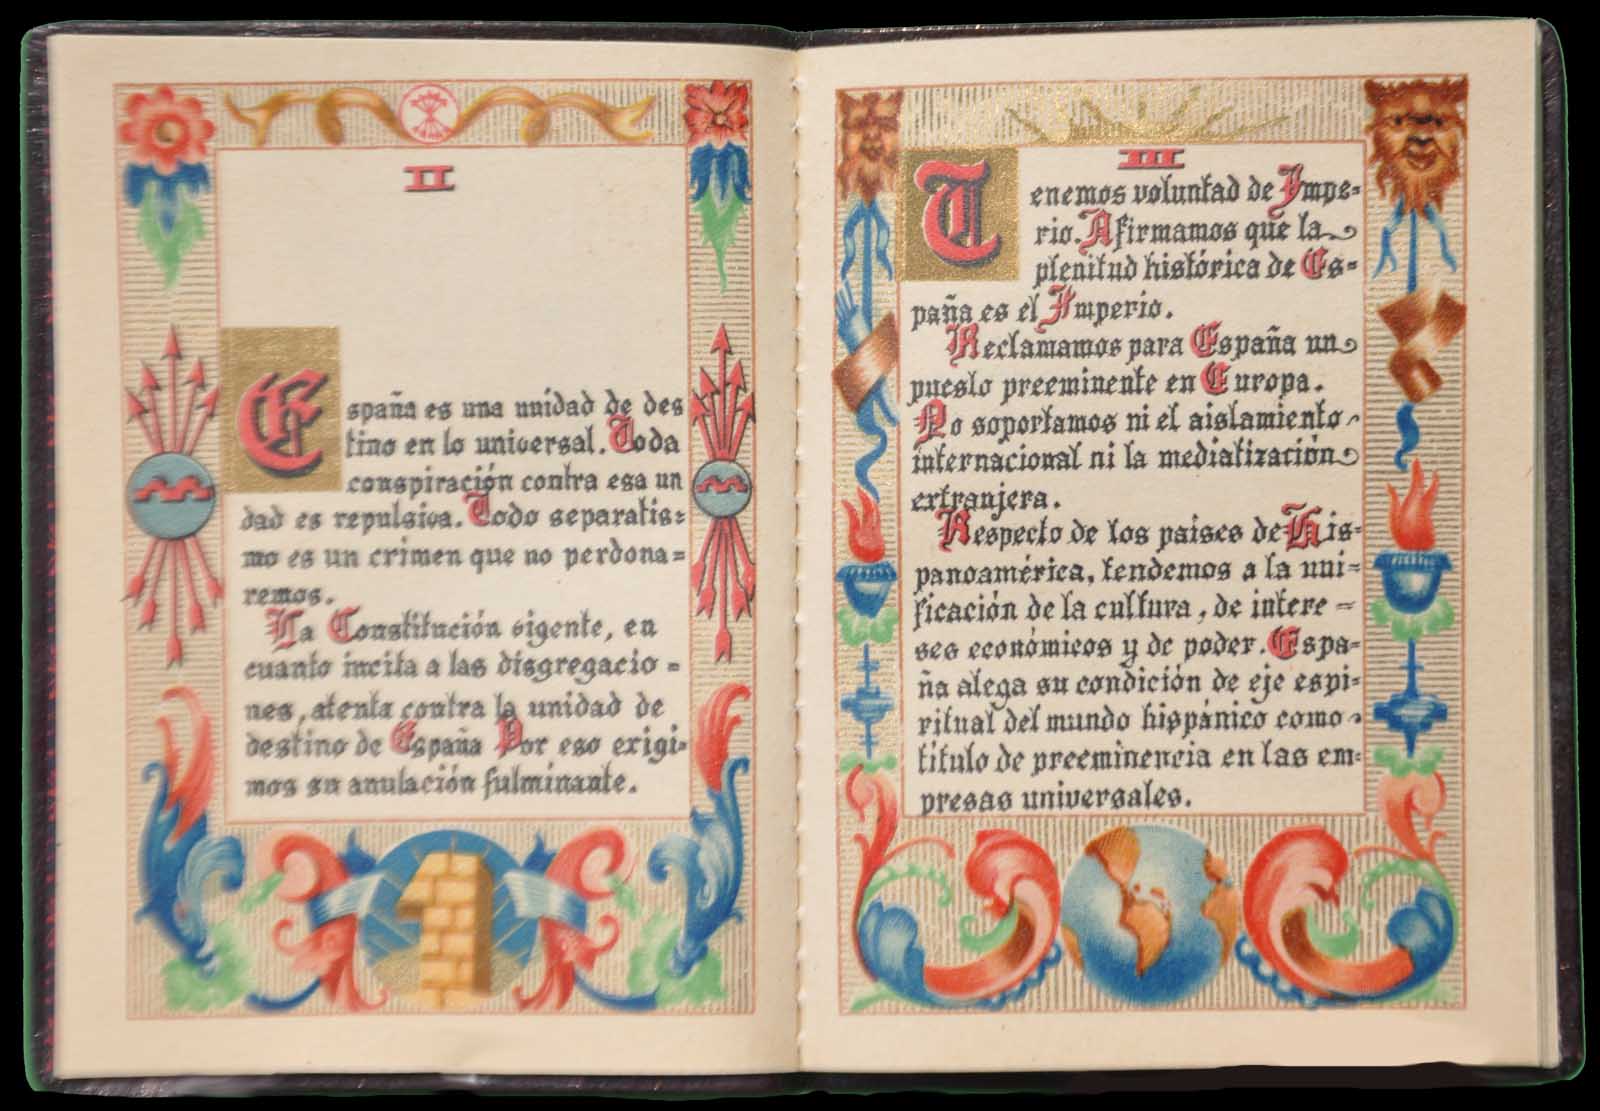 II
España es una unidad de des
tino en lo universal. Toda
conspiración contra esa un
dad es repulsiva. Todo separatis=
mo es un crimen que no perdona=
remos.
La Constitución vigente, en
cuanto incita a las disgregacio=
nes, atenta contra la unidad de
destino de España Por eso exigi=
mos su anulación fulminante.
III
Tenemos voluntad de Impe=
rio. Afirmamos que la
plenitud histórica de Es=
paña es el Imperio.
Reclamamos para España un
puesto preeminente en Europa.
No soportamos ni el aislamiento
internacional ni la mediatización
extranjera.
Respecto de los paises de His=
panoamérica, tendemos a la uni=
ficación de la cultura, de intere=
ses económicos y de poder. Espa=
ña alega su condición de eje espi=
ritual del mundo hispánico como
titulo de preeminencia en las em=
presas universales.